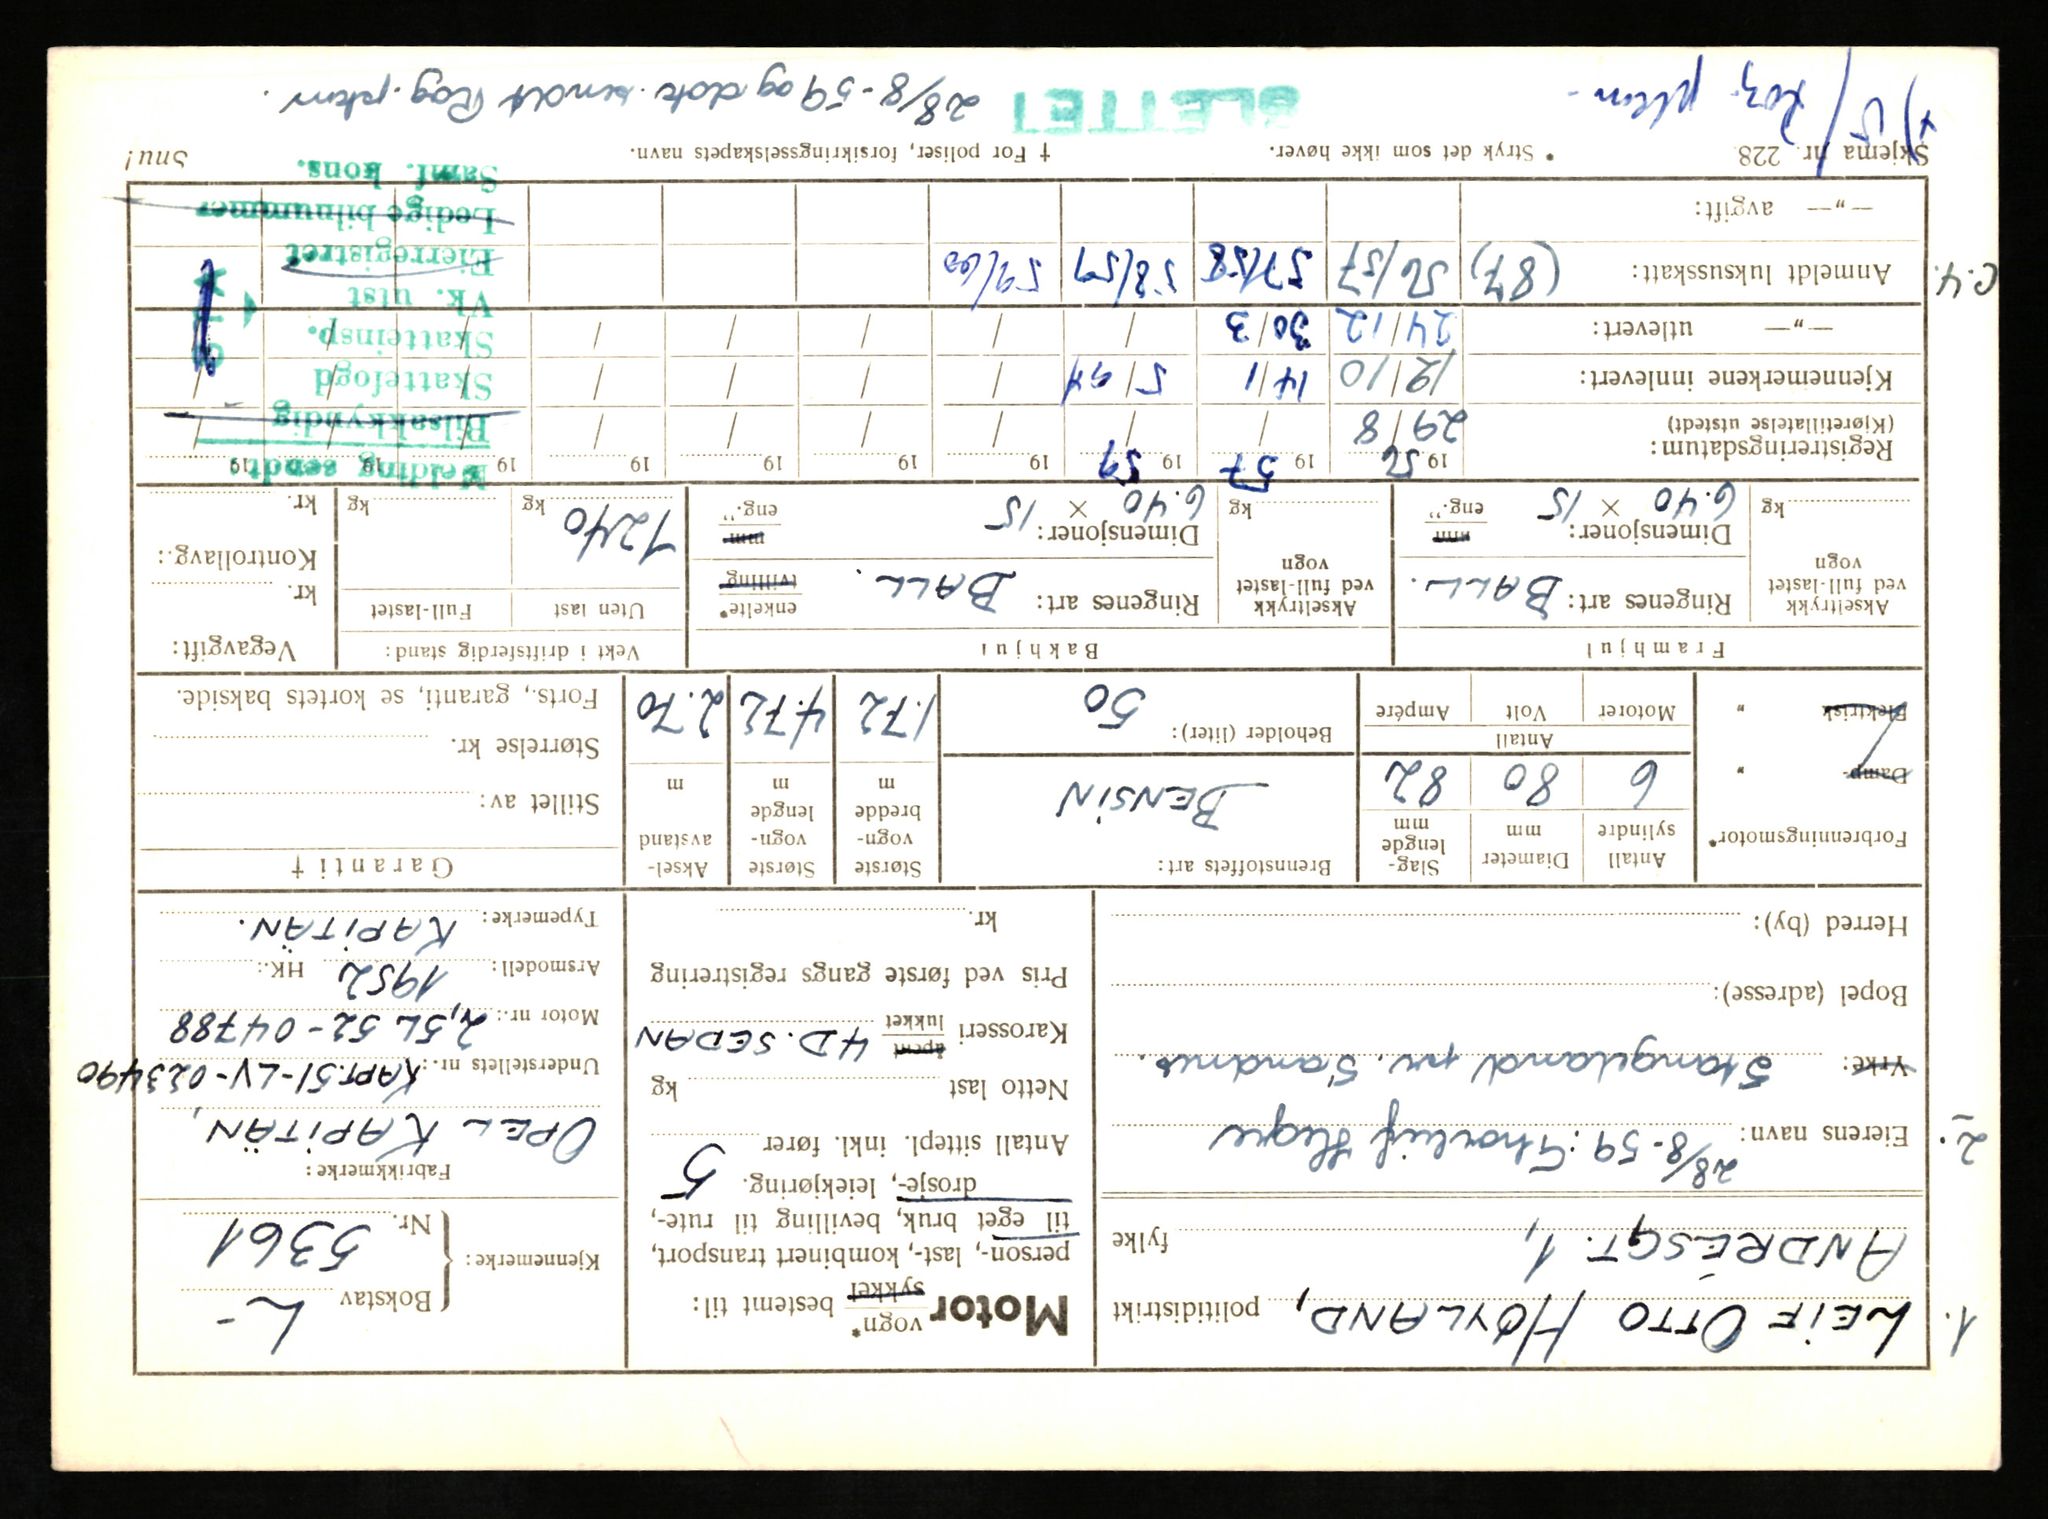 1.
LEIF OTTO HØYLAND,
politidistrikt
ANDRÉSGT. 1,
fylke
2.
Eierens navn: 28/8-59: Thorleif Hegre
Yrke: Stangeland pr. Sandnes.
Bopel (adresse):
Herred (by):
Motor
vogn*
sykkel
bestemt til:
person-, last-, kombinert transport,
til eget bruk, bevilling til rute-,
drosje-, leiekjøring.
Antall sittepl. inkl. fører 5
Netto last kg
Karosseri åpent
lukket
4 D. SEDAN
Pris ved første gangs registrering
kr.
Kjennemerke:
Bokstav L-
Nr. 5361
Fabrikkmerke:
OPEL KAPITÄN,
Understellets nr.: KAPT.51-LV-023490
Motor nr.: 2,5L 52-04788
Årsmodell: 1952 HK.:
Typemerke: KAPITÄN.
Forbrenningsmotor*
Damp- "
Elektrisk "
Antall sylindre
6
Diameter mm
80
Slag-lengde mm
82
Antall
Motorer
Volt
Ampére
Brennstoffets art:
BENSIN
Beholder (liter): 50
Største vogn-bredde m
1.72
Største vogn-lengde m
4.72
Aksel-avstand m
2.70
Garanti †
Stillet av:
Størrelse kr.
Forts., garanti, se kortets bakside.
Framhjul
Akseltrykk ved full-lastet vogn
kg
Ringenes art: BALL.
Dimensjoner: mm
eng."
6.40 × 15
Bakhjul
Akseltrykk ved full-lastet vogn
kg
Ringenes art: BALL.
enkelte*
tvilling
Dimensjoner: mm
eng."
6.40 × 15
Vekt i driftsferdig stand:
Uten last
1240 kg
Full-lastet
kg
Vegavgift:
kr.
Kontrollavg.:
kr.
Registreringsdatum:
(Kjøretillatelse utstedt)
1956 1957 1959 19 19 19 19 19 19 19
29/8
Kjennemerkene innlevert: 12/10 14/1 5/
—"— utlevert: 24/12 30/3
C.4.
Anmeldt luksusskatt: (87) 56/57 57/58 58/59 59/60
—"— avgift:
Melding sendt:
Bilsakkyndig
Skattefogd
Skatteinsp.
Vk. utst
Eierregistret
Ledige bilnummer
Samf. kons.
Skjema nr. 228.
* Stryk det som ikke høver.
† For poliser, forsikringsselskapets navn.
Snu!
SLETTET
28/8-59 og dok. sendt Rog. pkm.